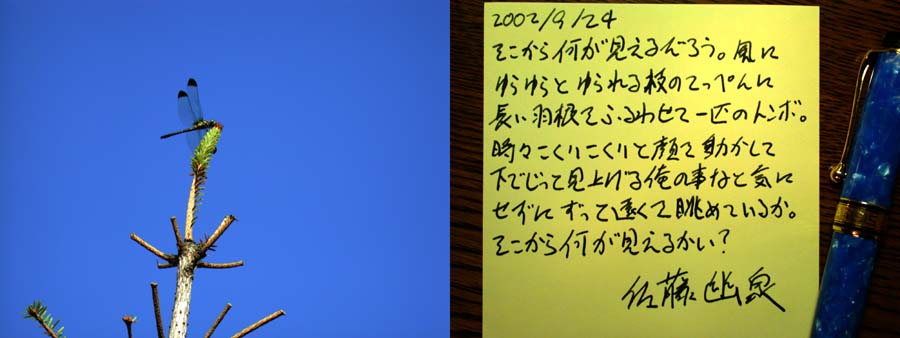 2002/9/24
そこから何が見えるんだろう。風に
ゆらゆらと ゆられる枝のてっぺんに
長い羽根をふるわせて一匹のトンボ。
時々こくりこくりと顔を動かして
下でじっと見上げる俺の事など気に
せずに ずっと遠くを眺めているか。
そこから何が見えるかい？
佐藤幽泉